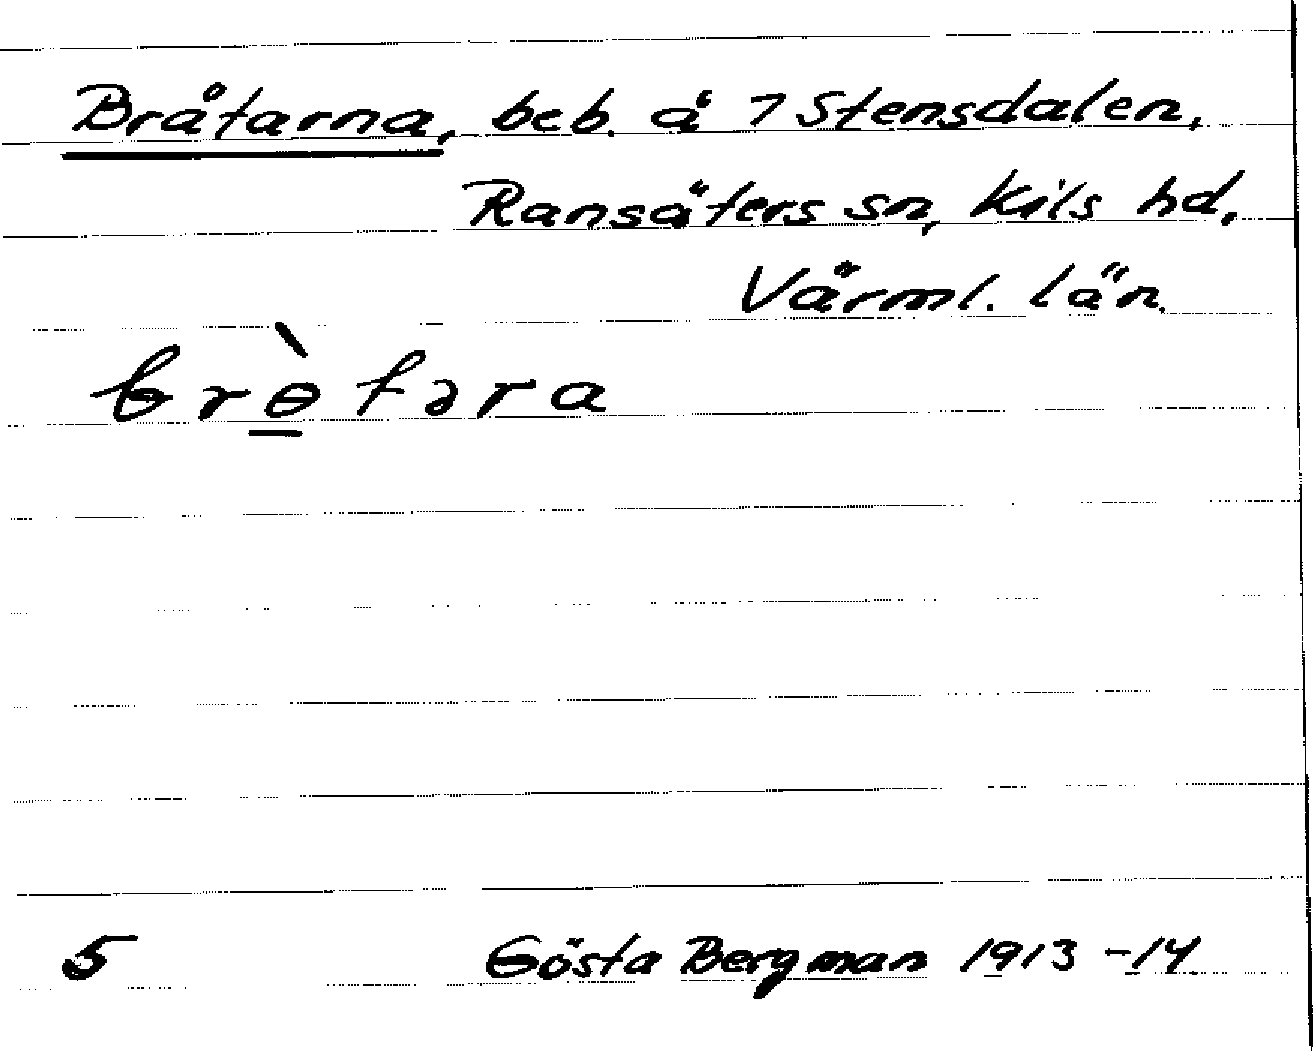 Bråtarna, beb. å 7 Stensdalen,
Ransäters sn, Kils hd,
Värml. län.
brɵ̀təra
5 Gösta Bergman 1913-14